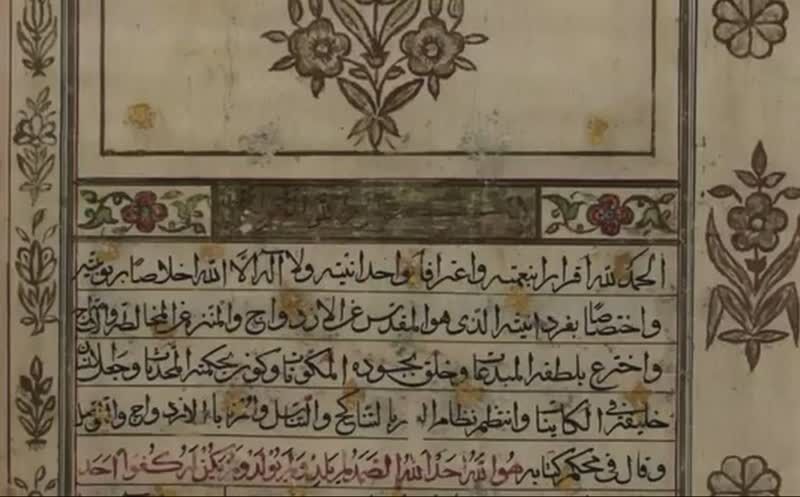 الحمد لله اقرارا بنعمته واعترافا بواحدانيته ولا اله الا الله اخلاصا بربوبيته
واختصاصا بفردانيته الذى هو المقدس عن الازدواج والمتنزه عن المخالطة
واخترع بلطفه المبدعات وخلق بجوده المكونات وكون بحكمته المحدثات وجعل
خليفته فى الكاينات وانتظم نظام بالتناكح والتناسل وامرنا بالازدواج
وقال فى محكم كتابه هو الله احد الله الصمد لم يلد ولم يولد ولم يكن له كفوا احد